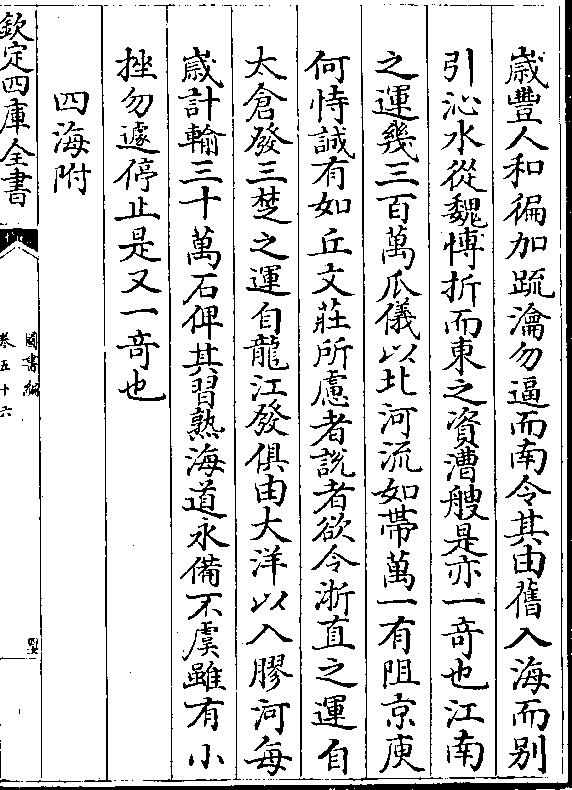 歲豐人和徧加疏瀹勿逼而南令其由舊入海而别
引沁水從魏博折而東之資漕艘是亦一奇也江南
之運幾三百萬瓜儀以北河流如帶萬一有阻京庾
何恃誠有如丘文莊所慮者說者欲令浙直之運自
太倉發三楚之運自龍江發俱由大洋以入膠河每
歲計輸三十萬石俾其習熟海道永備不虞雖有小
挫勿遽停止是又一竒也
四海附
欽定四庫全書
圖書編
卷五十六